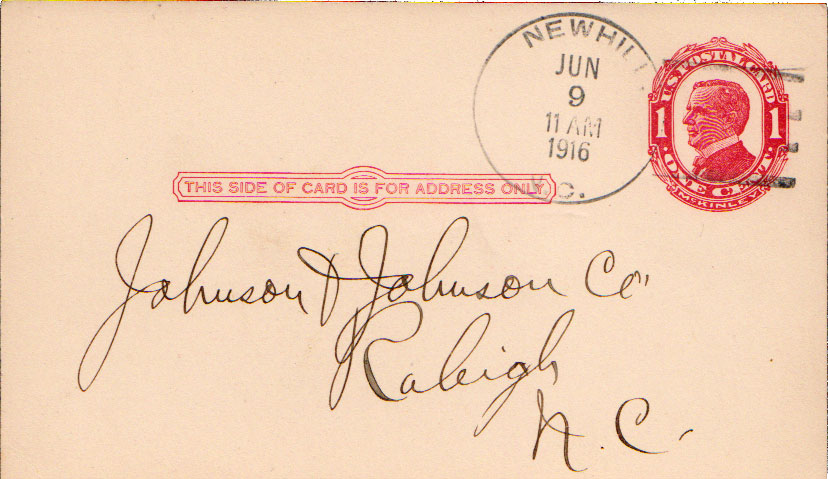 NEWHILL
JUN
9
11 AM
1916
N.C.
U.S. POSTAL CARD
1 1
ONE CENT
McKINLEY
THIS SIDE OF CARD IS FOR ADDRESS ONLY
Johnson & Johnson Co
Raleigh
N.C.